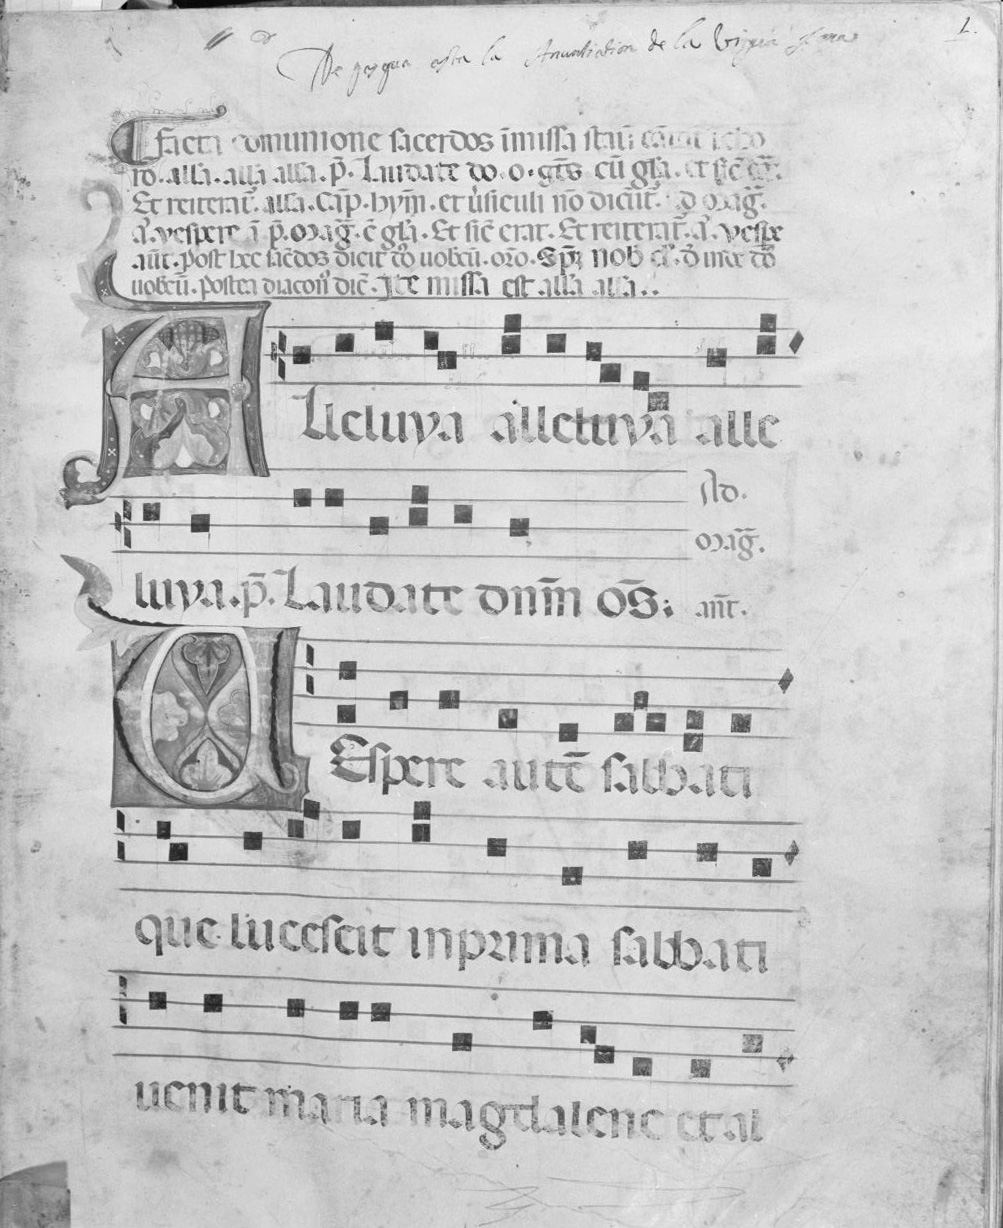 1.
De pasqua asta la Anuntiation de la
Facta comunione sacerdos īmissa
ro. all'a. all'a all'a. p̄. Laudate do. o. gn̄s cū gl'a. et sic̄
Et reiterat̄. all'a. Cap̄. hym̄. et ūsiculi nō dicūt.
a'. vespere ī p̄. ꝏag̅. ē gl'a. Et sic̄ erat. Et reiterat̄. a'. vespe
aūt. Post hec sac̄dos dicit dō uobcū. oro. Sp̄ꝫ nob
uobcū. Postea diacon' dic̄. Ite missa est all'a all'a..
Alleluya alleluya alle
luya. p̄. Laudate dn̄m̄ om̄s: an̄t.
ꝏag̅.
VEspere autē sabbati
que lucescit inprima sabbati
uenit maria magdalene et al